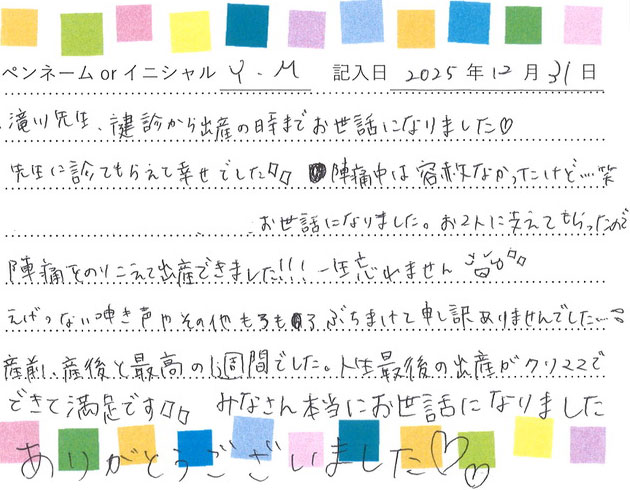 ペンネーム or イニシャル Y.M 記入日 2025年12月31日
滝川先生、健診から出産の時までお世話になりました♡
先生に診てもらえて幸せでした 陣痛中は容赦なかったけど…笑
お世話になりました。お2人に支えてもらったので
陣痛をのりこえて出産できました!!! 一生忘れません
えげつない呻き声やその他もろもろぶちまけて申し訳ありませんでした…
産前、産後と最高の1週間でした。人生最後の出産がクリニックで
できて満足です みなさん本当にお世話になりました
ありがとうございました♡♡